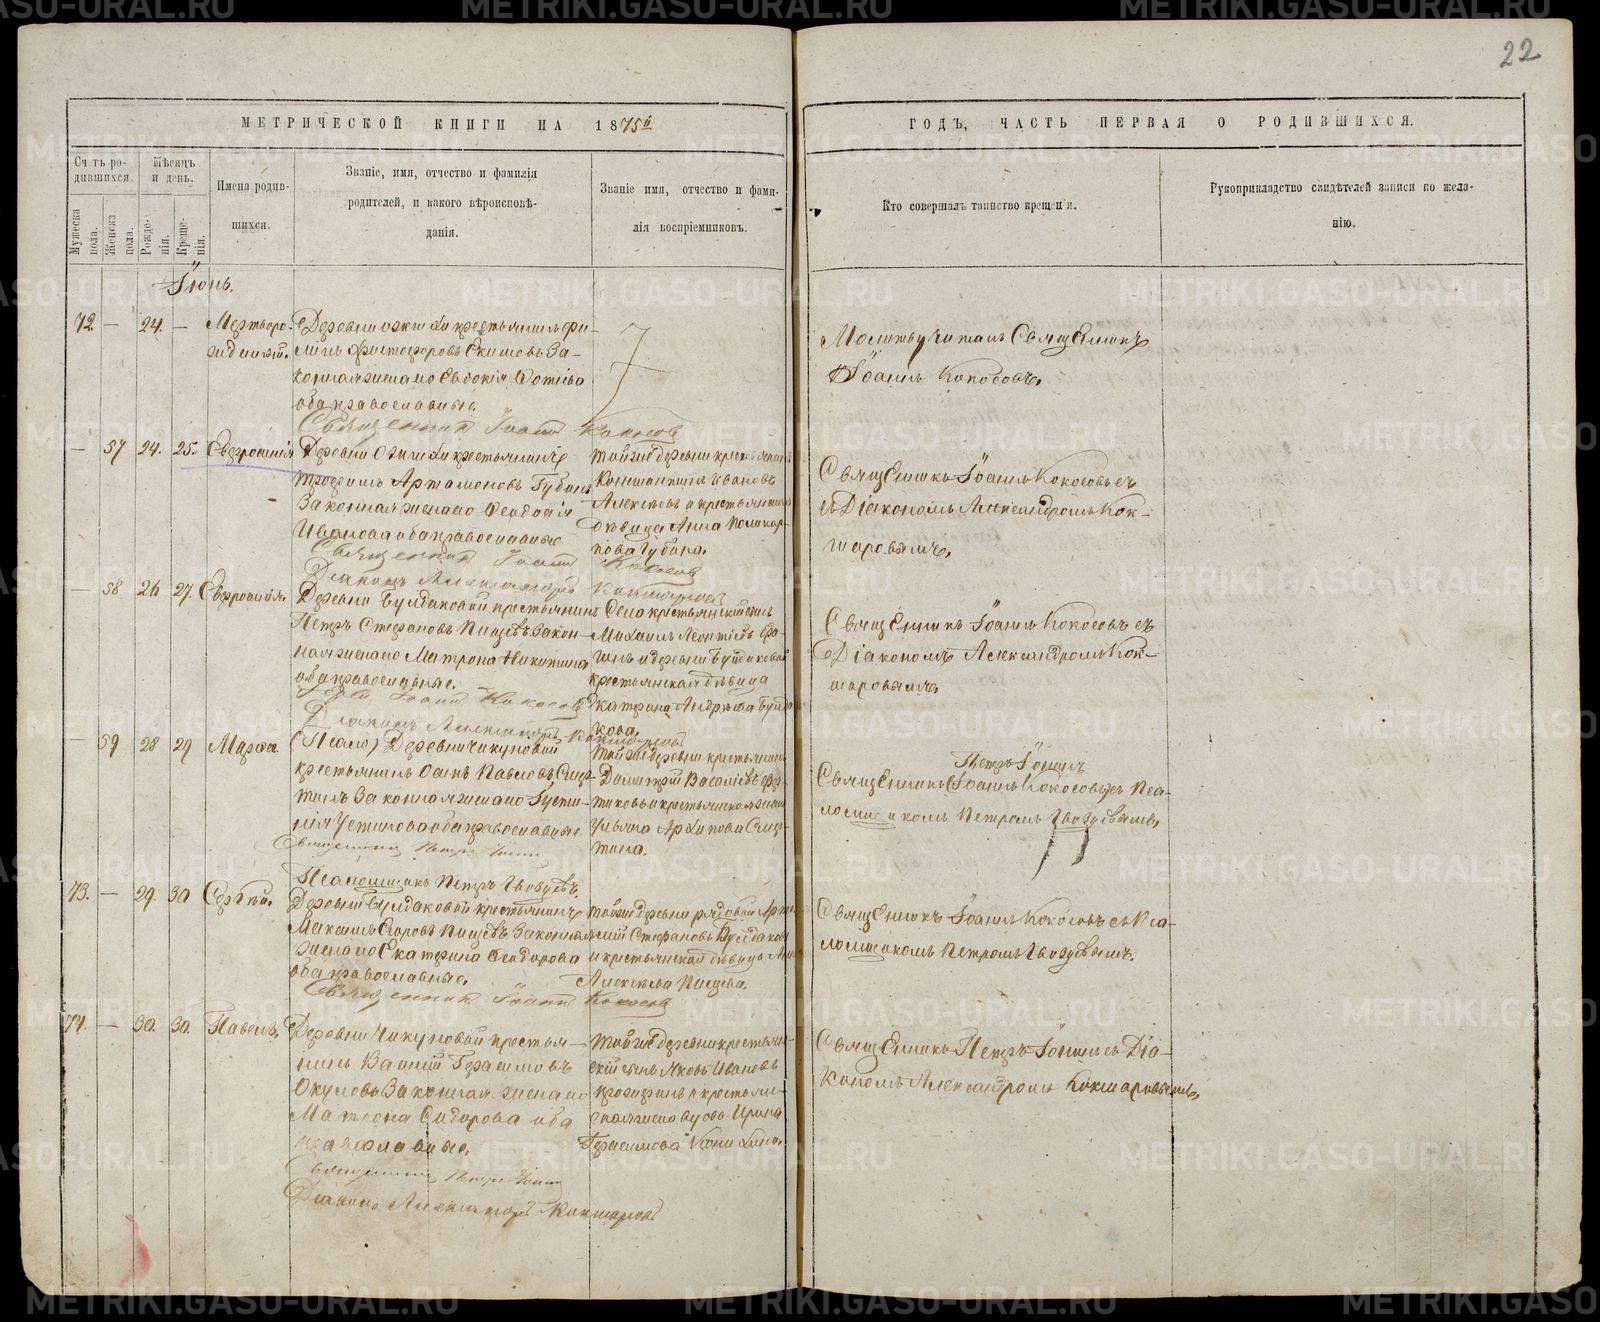 22
МЕТРИЧЕСКОЙ КНИГИ НА 1875й
ГОДЪ, ЧАСТЬ ПЕРВАЯ О РОДИВШИХСЯ.
Счетъ ро-
дившихся.
Мѣсяцъ
и день.
Мужеска
пола.
Женска
пола.
Рожде-
нія.
Креще-
нія.
Имена родив-
шихся.
Званіе, имя, отчество и фамилія
родителей, и какого вѣроисповѣ-
данія.
Званіе имя, отчество и фами-
лія воспріемниковъ.
Кто совершалъ таинство крещенія.
Рукоприкладство свидѣтелей записи по жела-
нію.
Іюнь.
72. — 24. —
Мертворо-
жденный.
Деревни крестьянинъ
Екимовъ За-
конная жена его Евдокія Фотіева
оба православные.
Священникъ Іоаннъ Кокосовъ
Молитву читалъ Священникъ
Іоаннъ Кокосовъ.
— 57 24. 25. Евфросинія
Деревни крестьянинъ
Трофимъ Артамоновъ Губинъ
Законная жена его Феодосія
Иванова оба православные
Священникъ Іоаннъ Кокосовъ
Діаконъ Александръ Кокшаровъ
той же деревни
Константинъ Ивановъ
Алексѣевъ и крестьянская
дѣвица Анна Поликар-
пова Губина.
Священникъ Іоаннъ Кокосовъ съ
Діакономъ Александромъ Кок-
шаровымъ.
— 58 26 27. Евфросинія.
Деревни Булдаковой крестьянинъ
Петръ Стефановъ Пищевъ Закон-
ная жена его Матрона Никитина
оба православные.
Іоаннъ Кокосовъ
Діаконъ Александръ Кокшаровъ
Село крестьянскій сынъ
Михаилъ Леонтіевъ
и деревни Булдаковой
крестьянская дѣвица
Екатерина Андреева Булда-
кова.
Священникъ Іоаннъ Кокосовъ съ
Діакономъ Александромъ Кок-
шаровымъ.
— 59 28 29 Марфа
Деревни Чикуновой
крестьянинъ Павловъ
Законная жена его Густи-
нія Устинова оба православные
Священникъ Петръ Іонинъ
Псаломщикъ Петръ Гвоздевъ.
той же деревни крестьянинъ
Димитрій Василіевъ
и крестьянская жена
Ульяна Архипова
Петръ Іонинъ
Священникъ (Іоаннъ Кокосовъ) съ Пса-
ломщикомъ Петромъ Гвоздевымъ.
73. — 29. 30 Сергѣй.
Деревни Булдаковой крестьянинъ
Максимъ Егоровъ Пищевъ Законная
жена его Екатерина Феодорова
оба православные.
Священникъ Іоаннъ Кокосовъ
той же деревни рядовой
Стефановъ Булдаковъ
и крестьянская дѣвица
Алексѣева Пищева.
Священникъ Іоаннъ Кокосовъ съ Пса-
ломщикомъ Петромъ Гвоздевымъ.
74. — 30. 30. Павелъ.
Деревни Чикуновой крестья-
нинъ Василій Герасимовъ
Окуловъ Законная жена его
Матрона Сидорова оба
православные.
Священникъ Петръ Іонинъ
Діаконъ Александръ Кокшаровъ
той же деревни крестьян-
скій сынъ Яковъ Ивановъ
и крестьян-
ская вдова Ирина
Герасимова
Священникъ Петръ Іонинъ съ Діа-
кономъ Александромъ Кокшаровымъ.